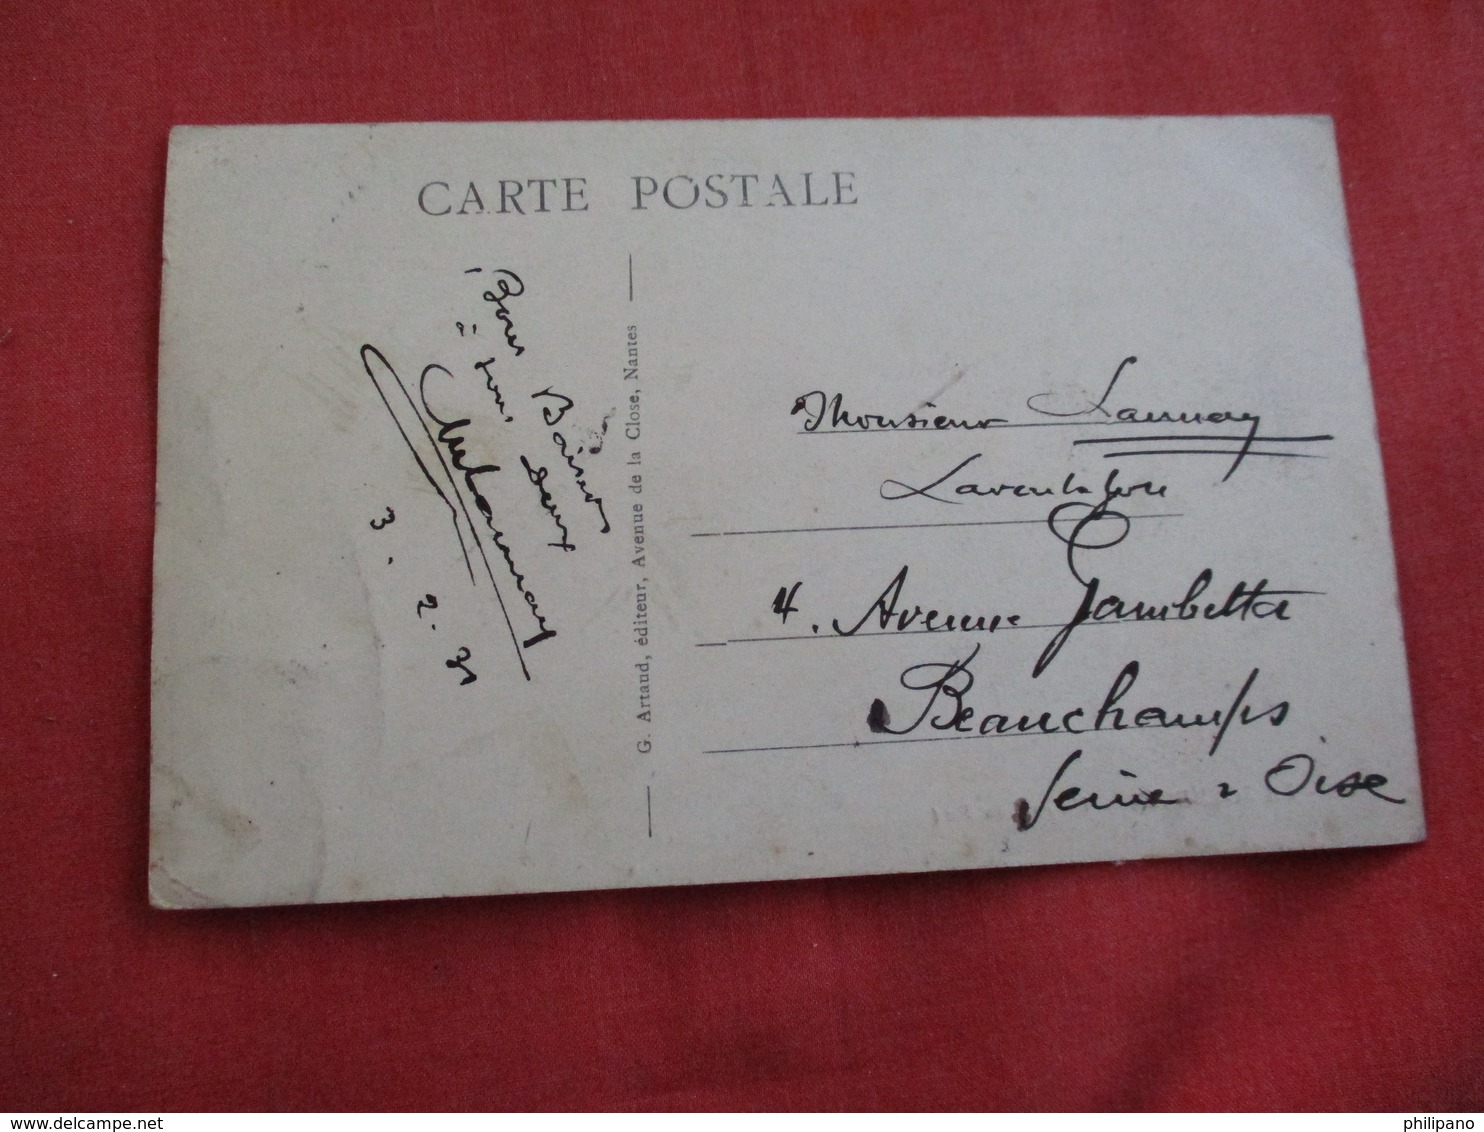 CARTE POSTALE
Bons Baisers
à tous deux
3. 2. 31
G. Artaud, éditeur, Avenue de la Close, Nantes
Monsieur Launay
4. Avenue Gambetta
Beauchamps
Seine & Oise
philipano